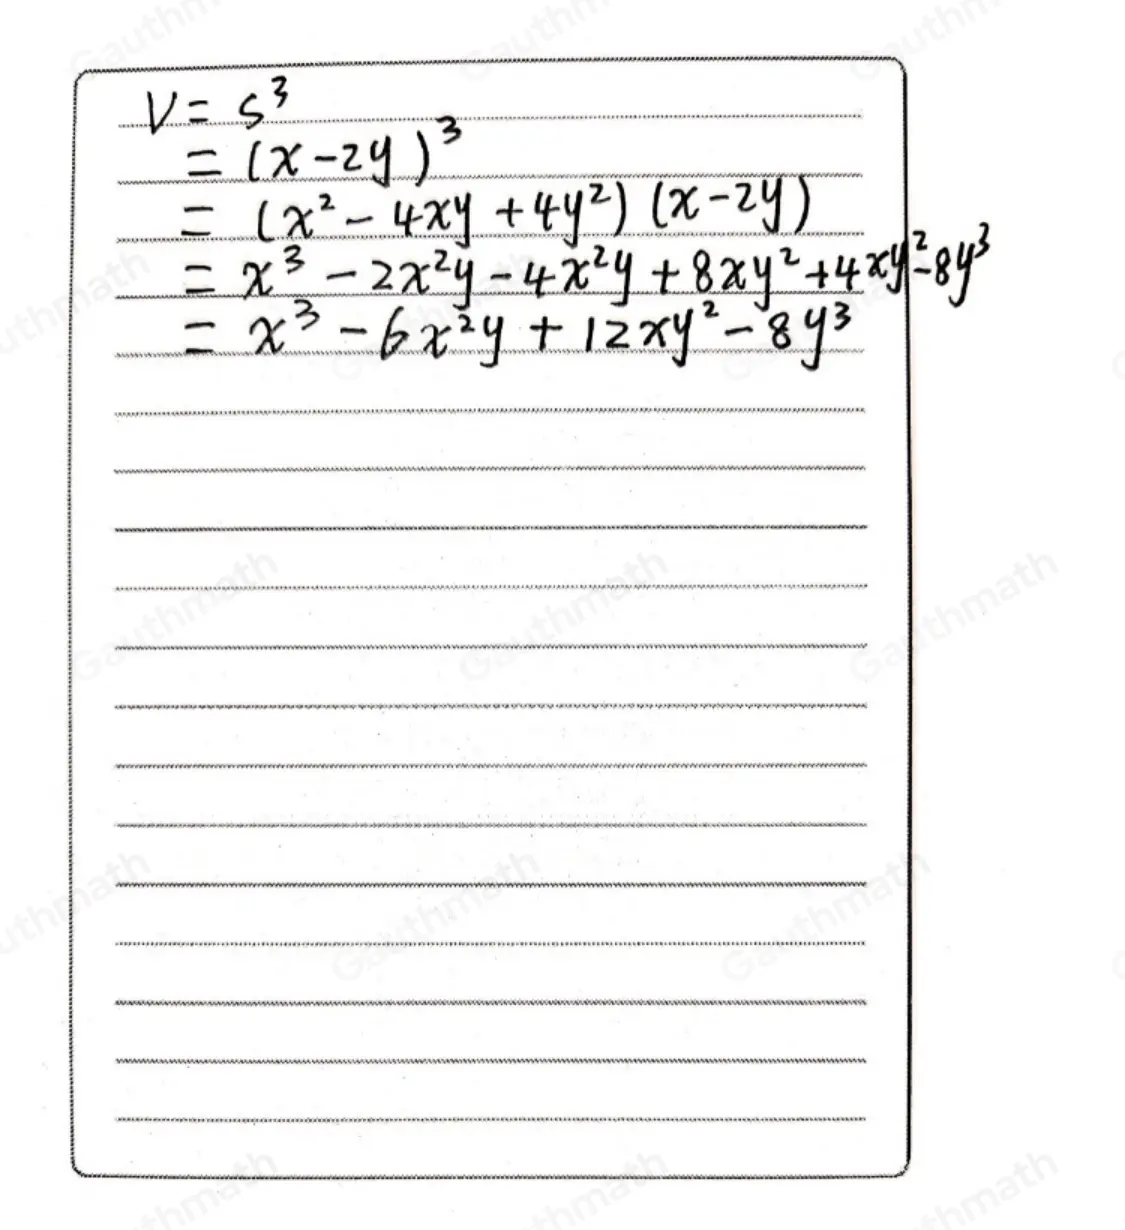 V = s³
= (x-2y)³
= (x² - 4xy + 4y²) (x-2y)
= x³ - 2x²y - 4x²y + 8xy² + 4xy² - 8y³
= x³ - 6x²y + 12xy² - 8y³
Gauthmath